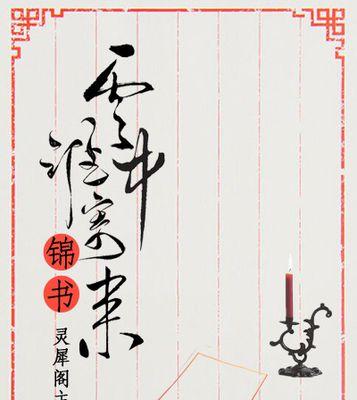 云中谁寄
锦书
来
灵犀阁主